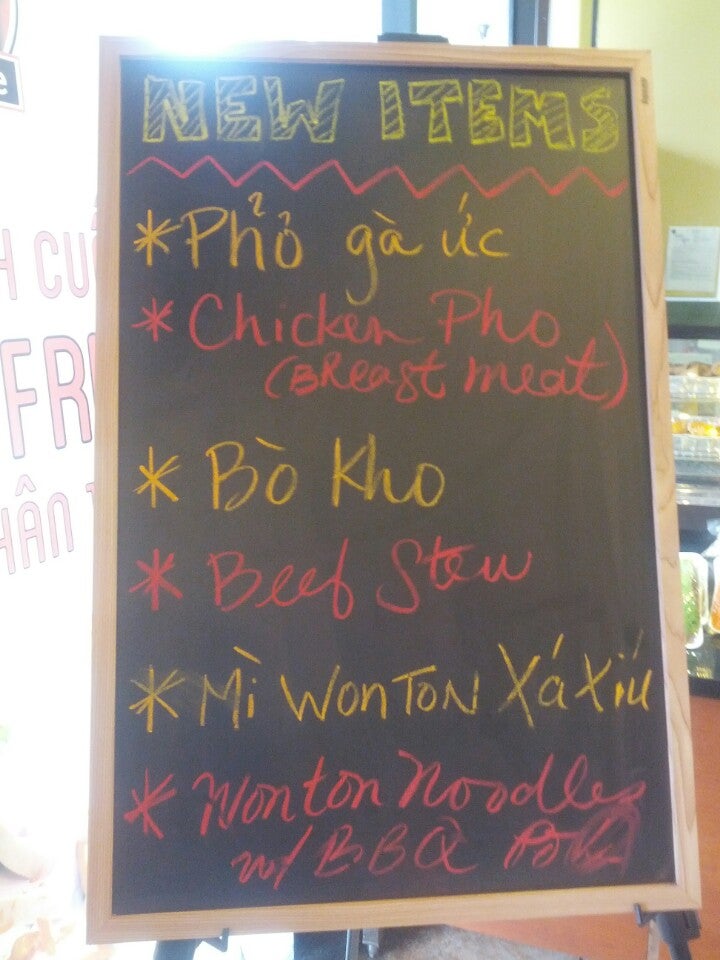 e
H CUỐ
FR
HÂN T
NEW ITEMS
*Phỏ gà ức
*Chicken Pho
(Breast meat)
*Bò Kho
*Beef Stew
*Mì WONTON Xá Xíu
*Wonton Noodles
w/ BBQ Pork